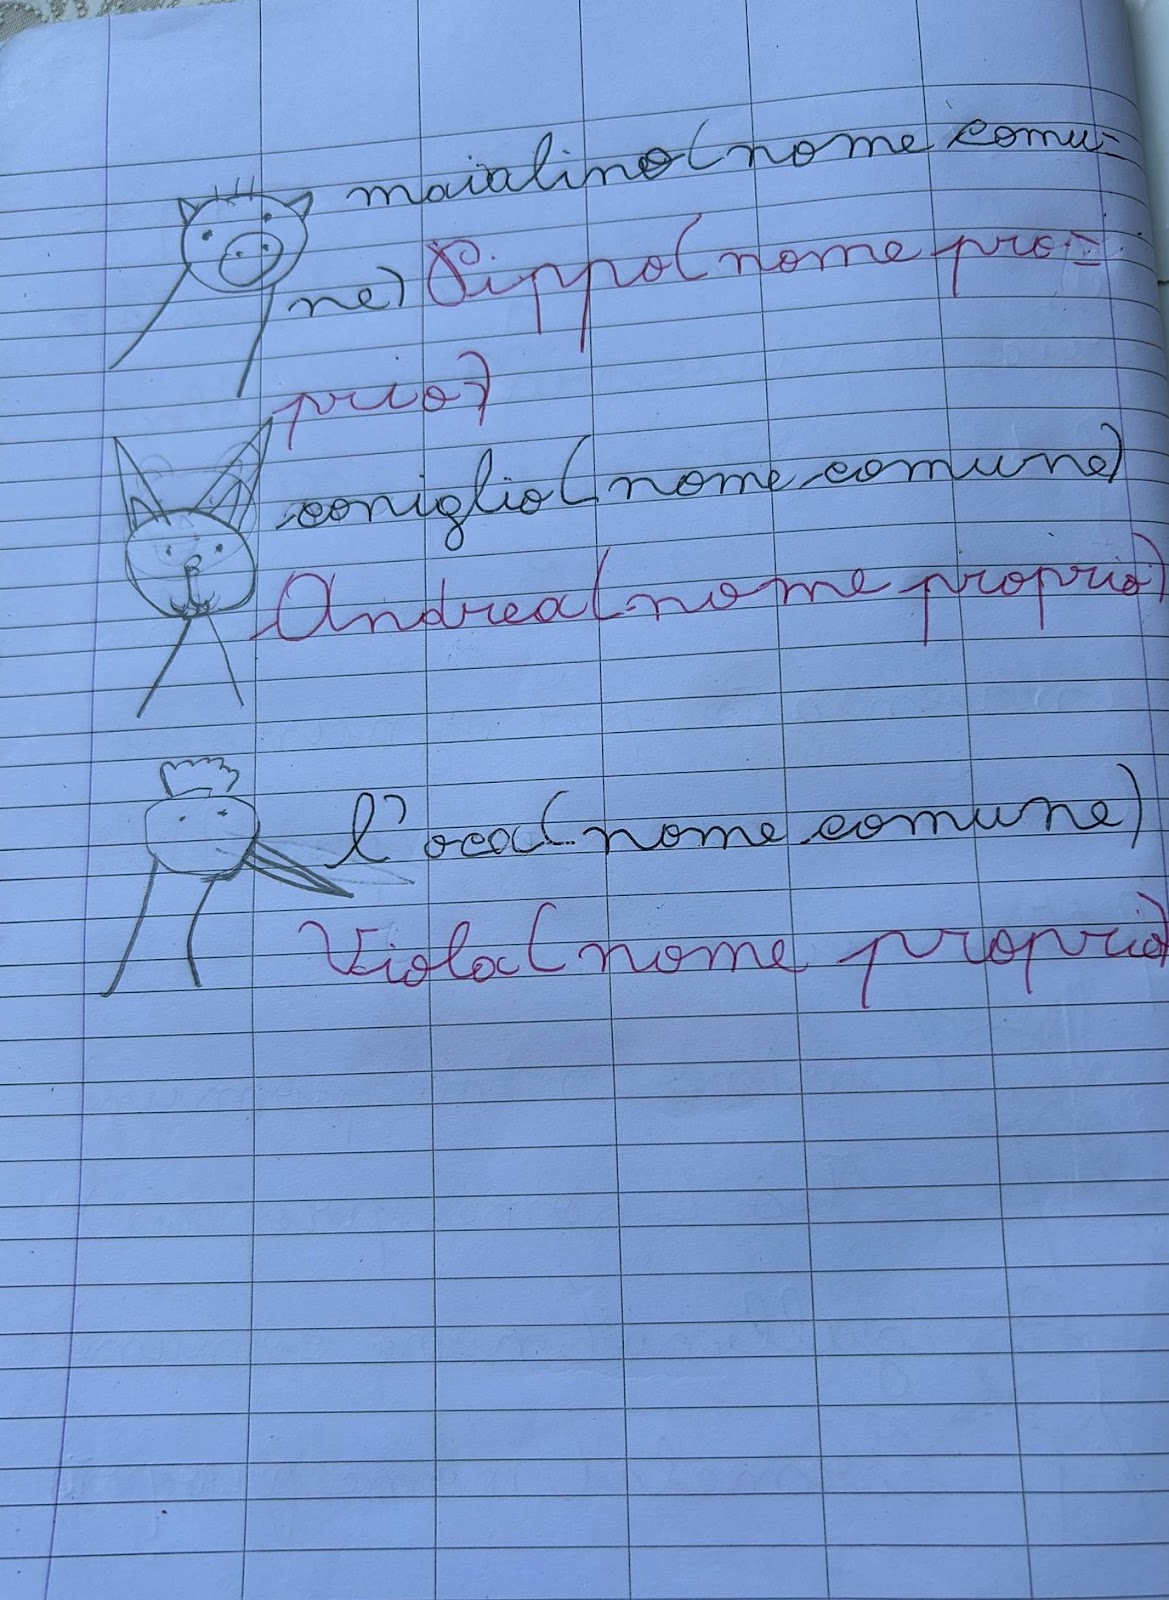 maialino (nome comu-
ne) Pippo (nome pro=
prio)
coniglio (nome comune)
Andrea (nome proprio)
l'oca (nome comune)
Viola (nome proprio)